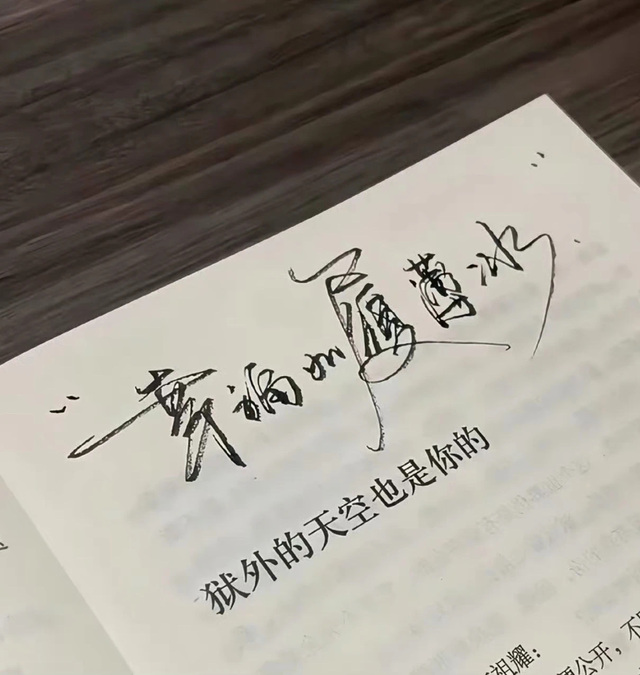 “幸福如履薄冰”
狱外的天空也是你的
祖耀：
公开，不